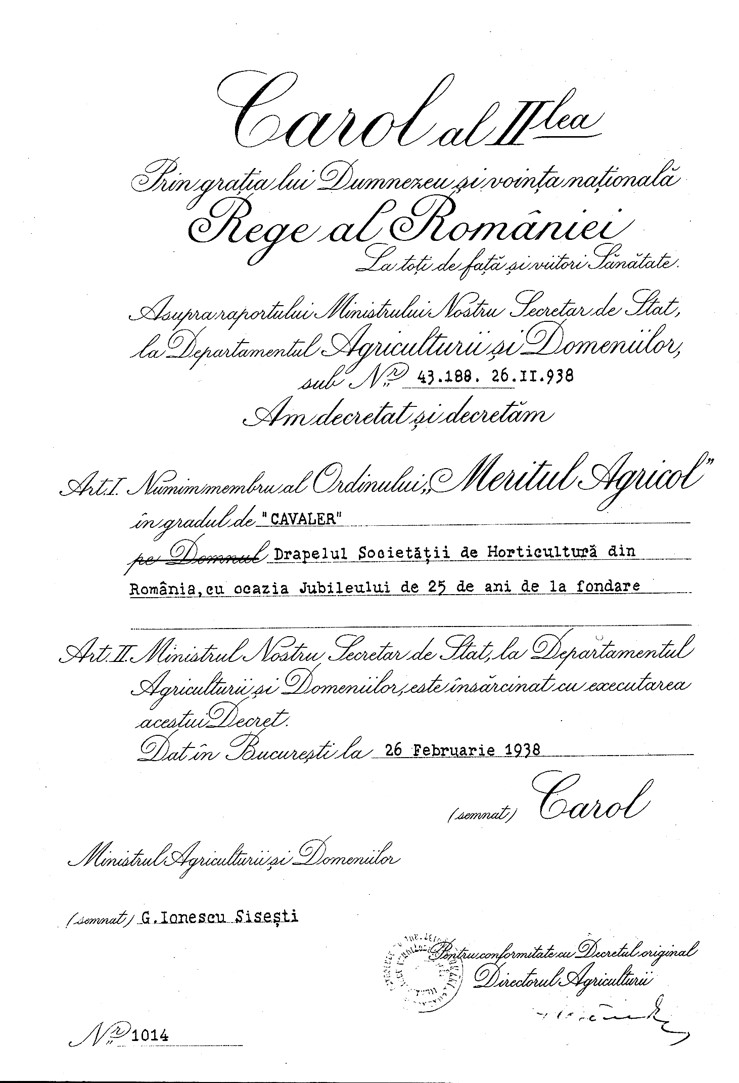 Carol al II lea
Prin grația lui Dumnezeu și voința națională
Rege al României
La toți de față și viitori Sănătate.
Asupra raportului Ministrului Nostru Secretar de Stat,
la Departamentul Agriculturii și Domeniilor,
sub Nr. 43.188. 26.II.938
Am decretat și decretăm
Art.I. Numim membru al Ordinului „Meritul Agricol”
în gradul de "CAVALER"
pe Domnul Drapelul Societății de Horticultură din
România, cu ocazia Jubileului de 25 de ani de la fondare
Art.II. Ministrul Nostru Secretar de Stat, la Departamentul
Agriculturii și Domeniilor, este însărcinat cu executarea
acestui Decret.
Dat în București la 26 Februarie 1938
(semnat) Carol
Ministrul Agriculturii și Domeniilor
(semnat) G.Ionescu Sisești
Pentru conformitate cu Decretul original
Directorul Agriculturii
Nr. 1014